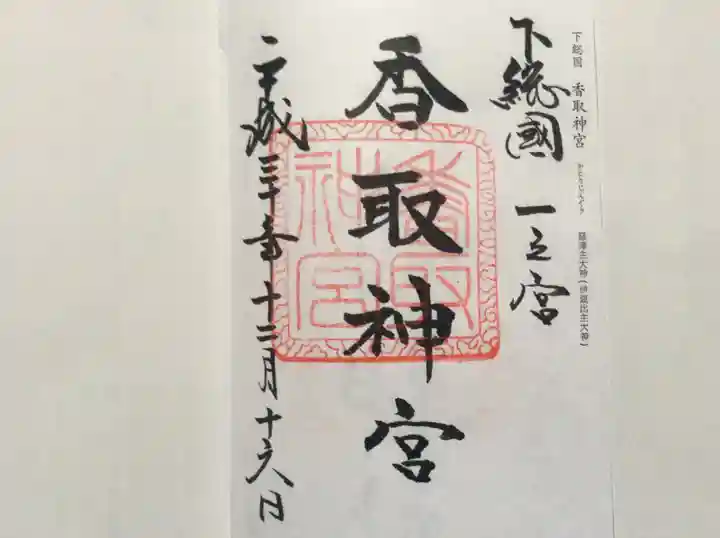 下総国 香取神宮 かとりじんぐう 経津主大神(伊波比主大神)
下総國 一之宮
香取神宮
香取神宮
平成三十年十二月十六日